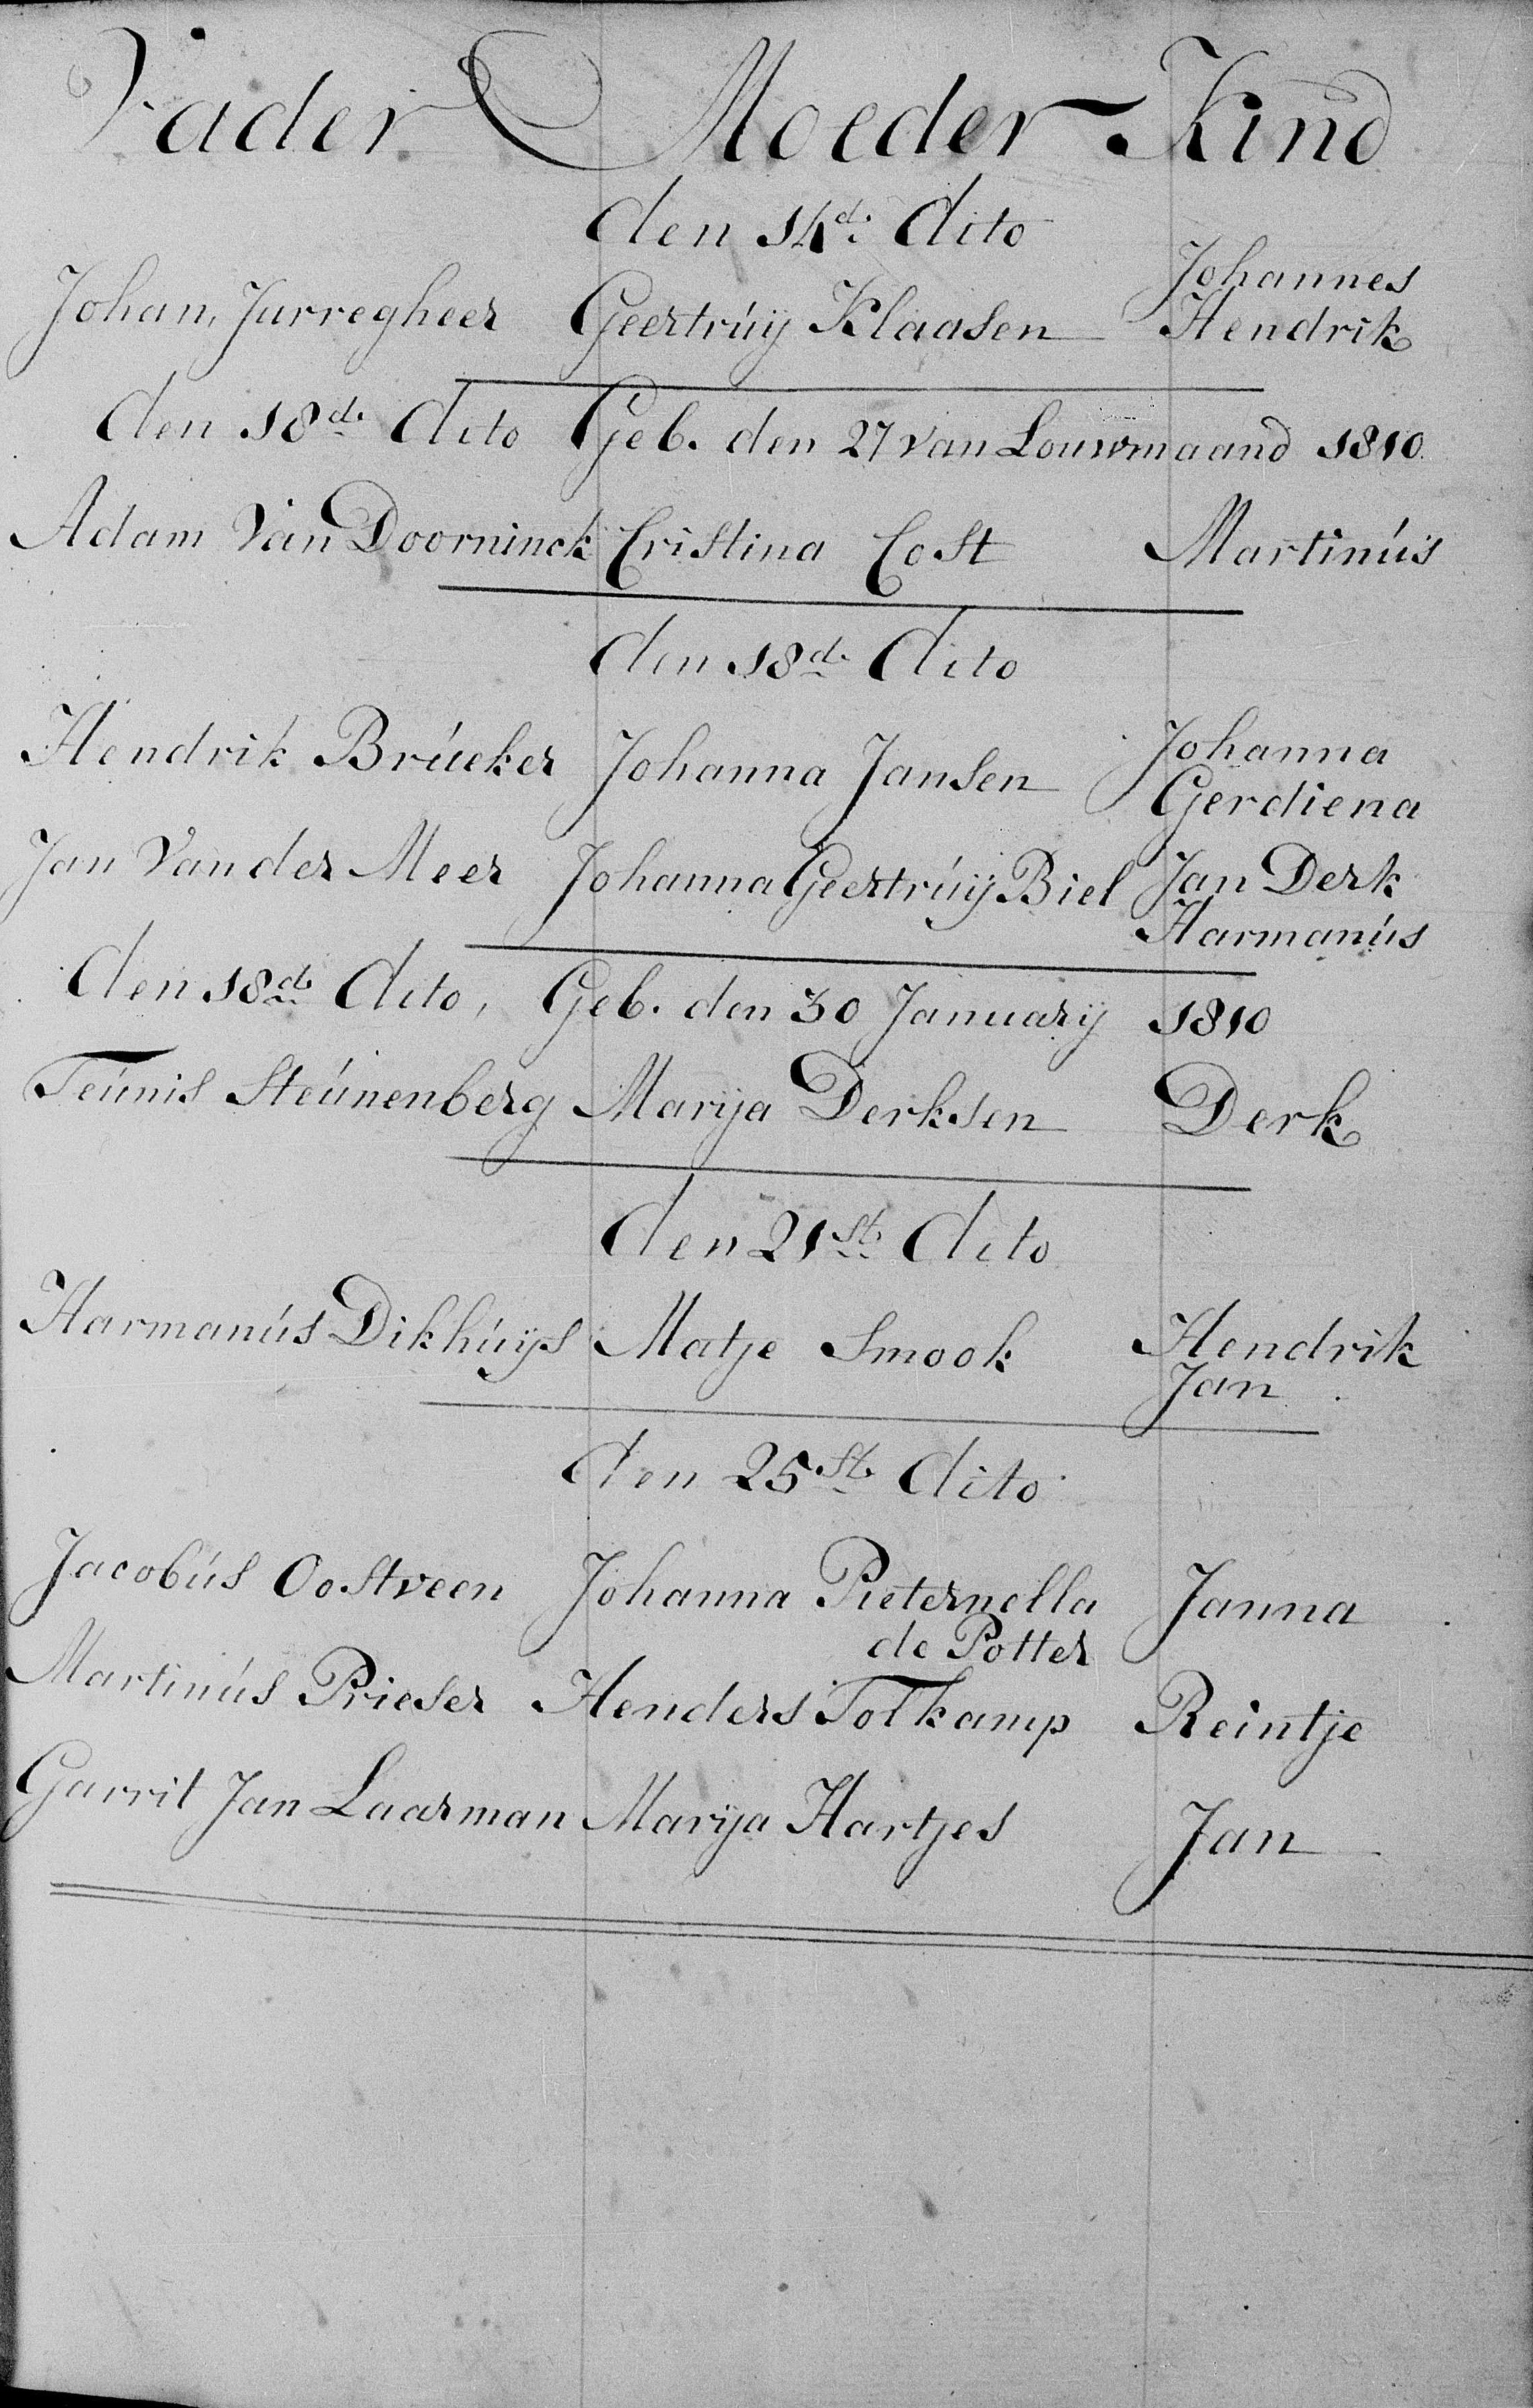 Vader Moeder Kind
den 14d. dito
Johannes
Johan, Jurregheer Geertrúÿ Klaasen Hendrik
den 18d. dito Geb. den 27 van Louwmaand 1810.
Adam Van Doorninck Cristina Cost Martinús
den 18d. dito
Hendrik Brúeker Johanna Jansen Johanna
Gerdiena
Jan Van der Meer Johanna Geertrúÿ Biel Jan Derk
Harmanús
den 18d. dito, Geb. den 30 Januarÿ 1810
Teúnis Steúnenberg Marÿa Derksen Derk
den 21st. dito
Harmanús Dikhúÿs Matje Smook Hendrik
Jan
den 25st. dito
Jacobús Oostveen Johanna Pieternella Janna
de Potter
Martinús Prieser Henders Tolkamp Reintje
Garrit Jan Laarman Marÿa Hartjes Jan